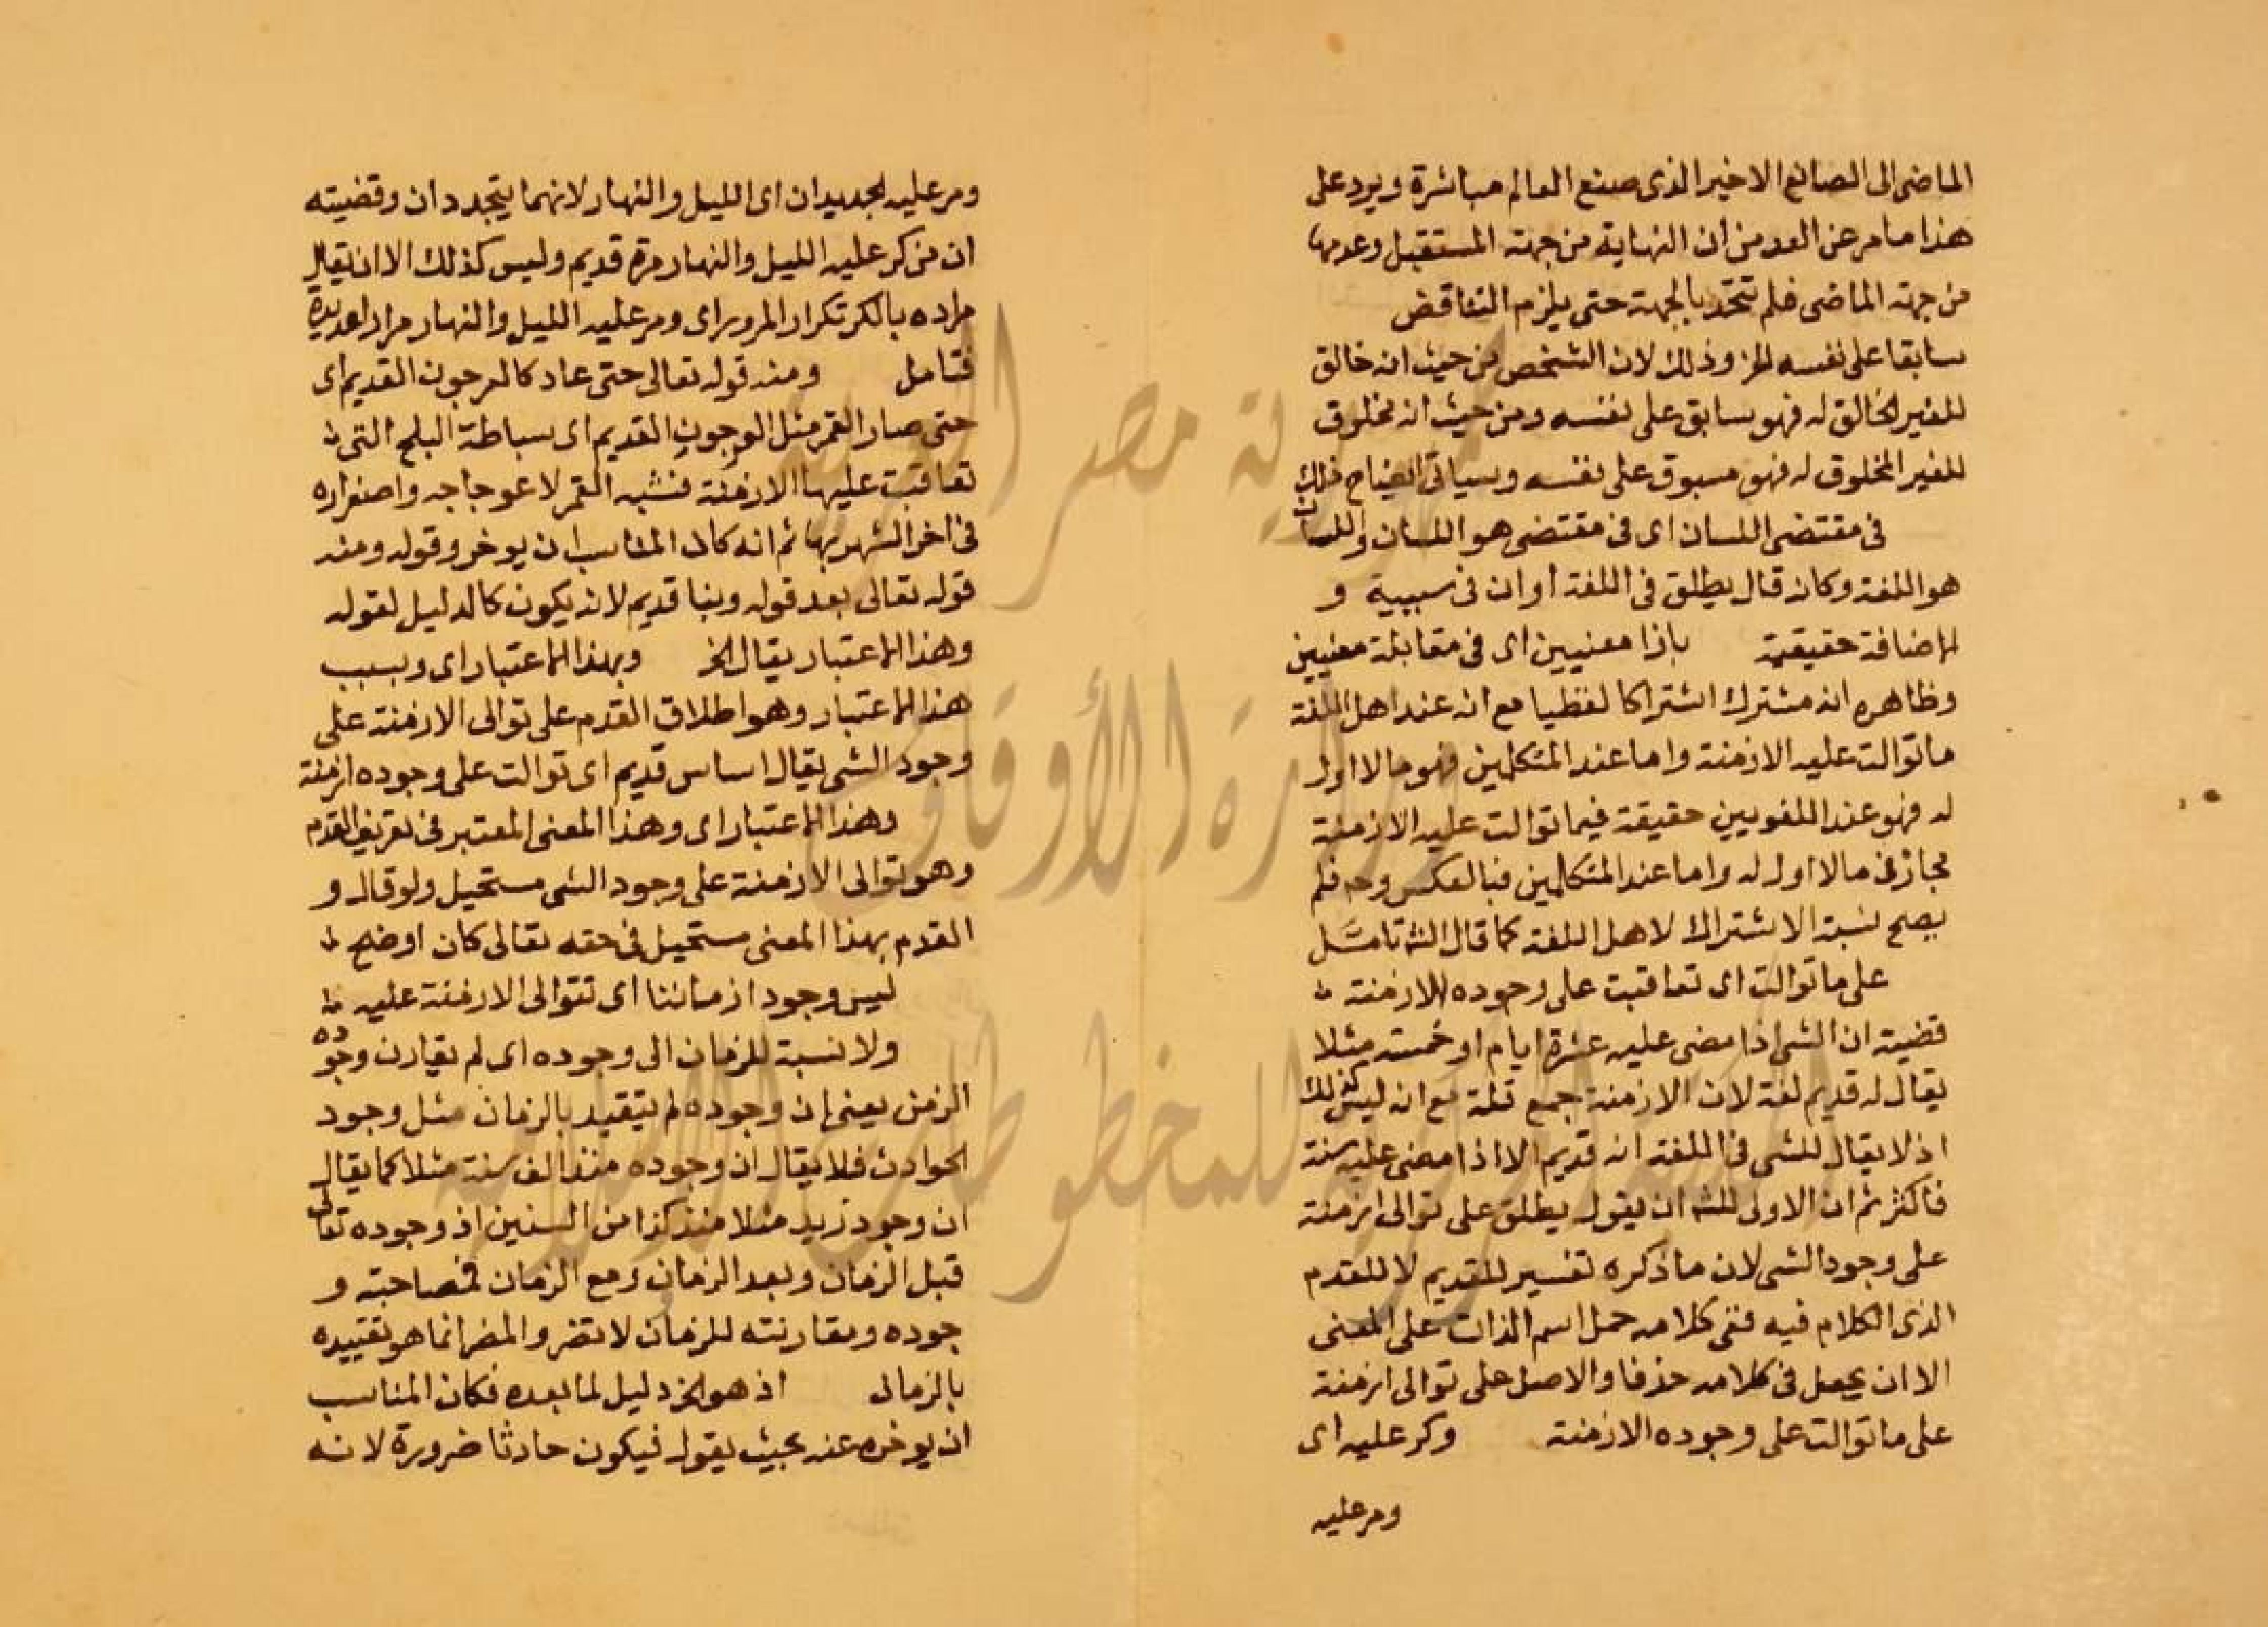 الماضى الى الصانع الاخير الذى صنع العالم مباشرة ويرد على
هذا ما مر عن العد من أن النهاية من جهة المستقبل وعدمها
من جهة الماضى فلم تتحد بالجهة حتى يلزم التناقض
سابقا على نفسه الخ وذلك لان الشخص من حيث انه خالق
للغير الخالق له فهو سابق على نفسه ومن حيث انه مخلوق
للغير المخلوق له فهو مسبوق على نفسه وسياتى ايضاح ذلك
فى مقتضى اللسان اى فى مقتضى هو اللسان واللسان
هو اللغة وكانه قال يطلق فى اللغة او ان فى سببية و
الاضافة حقيقة بازا معنيين اى فى مقابلة معنيين
وظاهره انه مشترك اشتراكا لفظيا مع انه عند اهل اللغة
ما توالت عليه الازمنة واما عند المتكلمين فهو ما لا اول
له فهو عند اللغويين حقيقة فيما توالت عليه الازمنة
مجاز فى ما لا اول له واما عند المتكلمين فبالعكس وح فلم
يصح نسبة الاشتراك لاهل اللغة كما قال الش تامل
على ما توالت اى تعاقبت على وجوده الازمنة
قضيته ان الشى اذا مضى عليه عشرة ايام او خمسة مثلا
يقال له قديم لغة لان الازمنة جمع قلة مع انه ليس كذلك
اذ لا يقال للشى فى اللغة انه قديم الا اذا مضى عليه سنة
فاكثر ثم ان الاولى للش ان يقول يطلق على توالى ازمنة
على وجود الشى لان ما ذكره تفسير للقديم لا للقدم
الذى الكلام فيه ففى كلامه حمل اسم الذات على المعنى
الا ان يجعل فى كلامه حذفا والاصل على توالى ازمنة
على ما توالت على وجوده الازمنة وكر عليه اى
ومر عليه
ومر عليه الجديدان اى الليل والنهار لانهما يتجددان وقضيته
ان من كر عليه الليل والنهار مرة قديم وليس كذلك الا ان يقال
مراده بالكر تكرار المرور اى ومر عليه الليل والنهار مرارا عديدة
فتامل ومنه قوله تعالى حتى عاد كالعرجون القديم اى
حتى صار القمر مثل العرجون القديم اى سباطة البلح التى
تعاقبت عليها الازمنة فشبه القمر لاعوجاجه واصفراره
فى اخر الشهر بها ثم انه كان المناسب ان يوخر وقوله ومنه
قوله تعالى بعد قوله وبنا قديم لانه يكون كالدليل لقوله
وهذا الاعتبار يقال الخ وبهذا الاعتبار اى وبسبب
هذا الاعتبار وهو اطلاق القدم على توالى الازمنة على
وجود الشى يقال اساس قديم اى توالت على وجوده ازمنة
وهذا الاعتبار اى وهذا المعنى المعتبر فى تعريف القدم
وهو توالى الازمنة على وجود الشى مستحيل ولو قال و
القدم بهذا المعنى مستحيل فى حقه تعالى كان اوضح
ليس وجوده ازمانيا اى تتوالى الازمنة عليه
ولا نسبة للزمان الى وجوده اى لم يقارن وجوده
الزمن يعنى ان وجوده لم يتقيد بالزمان مثل وجود
الحوادث فلا يقال ان وجوده منذ الف سنة مثلا كما يقال
ان وجود زيد مثلا منذ كذا من السنين اذ وجوده تعالى
قبل الزمان وبعد الزمان ومع الزمان فمصاحبة و
جوده ومقارنته للزمان لا تضر والمضر انما هو تقييده
بالزمان اذ هو الخ دليل لما بعده فكان المناسب
ان يوخره عنه بحيث يقول فيكون حادثا ضرورة لانه
جمهورية مصر العربية
وزارة الأوقاف
المكتبة المركزية للمخطوطات الإسلامية